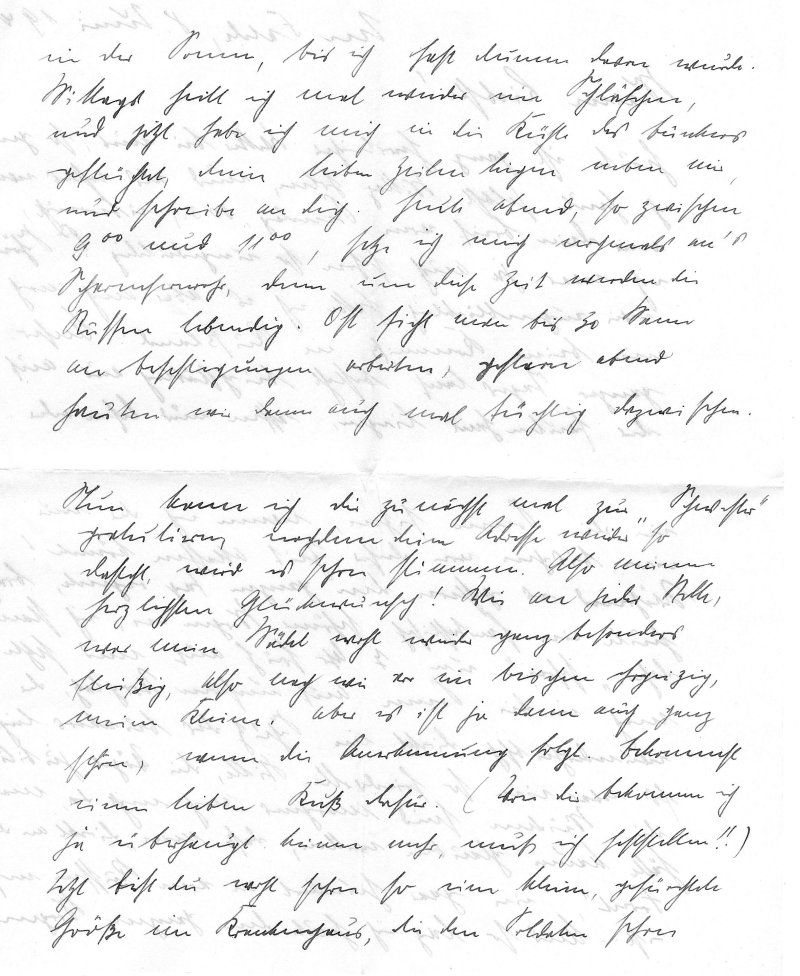 in der Sonne, bis ich fast dumm davon wurde.
Mittags hielt ich mal wieder ein Schläfchen,
und jetzt habe ich mich in die Kühle des Bunkers
geflüchtet, deine lieben Zeilen liegen neben mir,
und schreibe an dich. Heute abend, so zwischen
9⁰⁰ und 11⁰⁰, setze ich mich nochmals an's
Scherenfernrohr, denn um diese Zeit werden die
Russen lebendig. Oft sieht man bis 30 Mann
an Befestigungen arbeiten, gestern abend
hauten wir dann auch mal tüchtig dazwischen.
Nun kann ich dir zunächst mal zur "Schwester"
gratulieren, nachdem deine Adresse wieder so
dasteht, wird es schon stimmen. Also meinen
herzlichsten Glückwunsch! Wie an jeder Stelle,
war mein Mädel wohl wieder ganz besonders
fleißig, also nach wie vor ein bischen ehrgeizig,
meine Kleine. Aber es ist ja dann auch ganz
schön, wenn die Anerkennung folgt. Bekommst
einen lieben Kuß dafür. (Von dir bekomme ich
ja überhaupt keinen mehr, muß ich feststellen!!)
Jetzt bist du wohl schon so eine kleine, gefürchtete
Größe im Krankenhaus, die den Soldaten schon